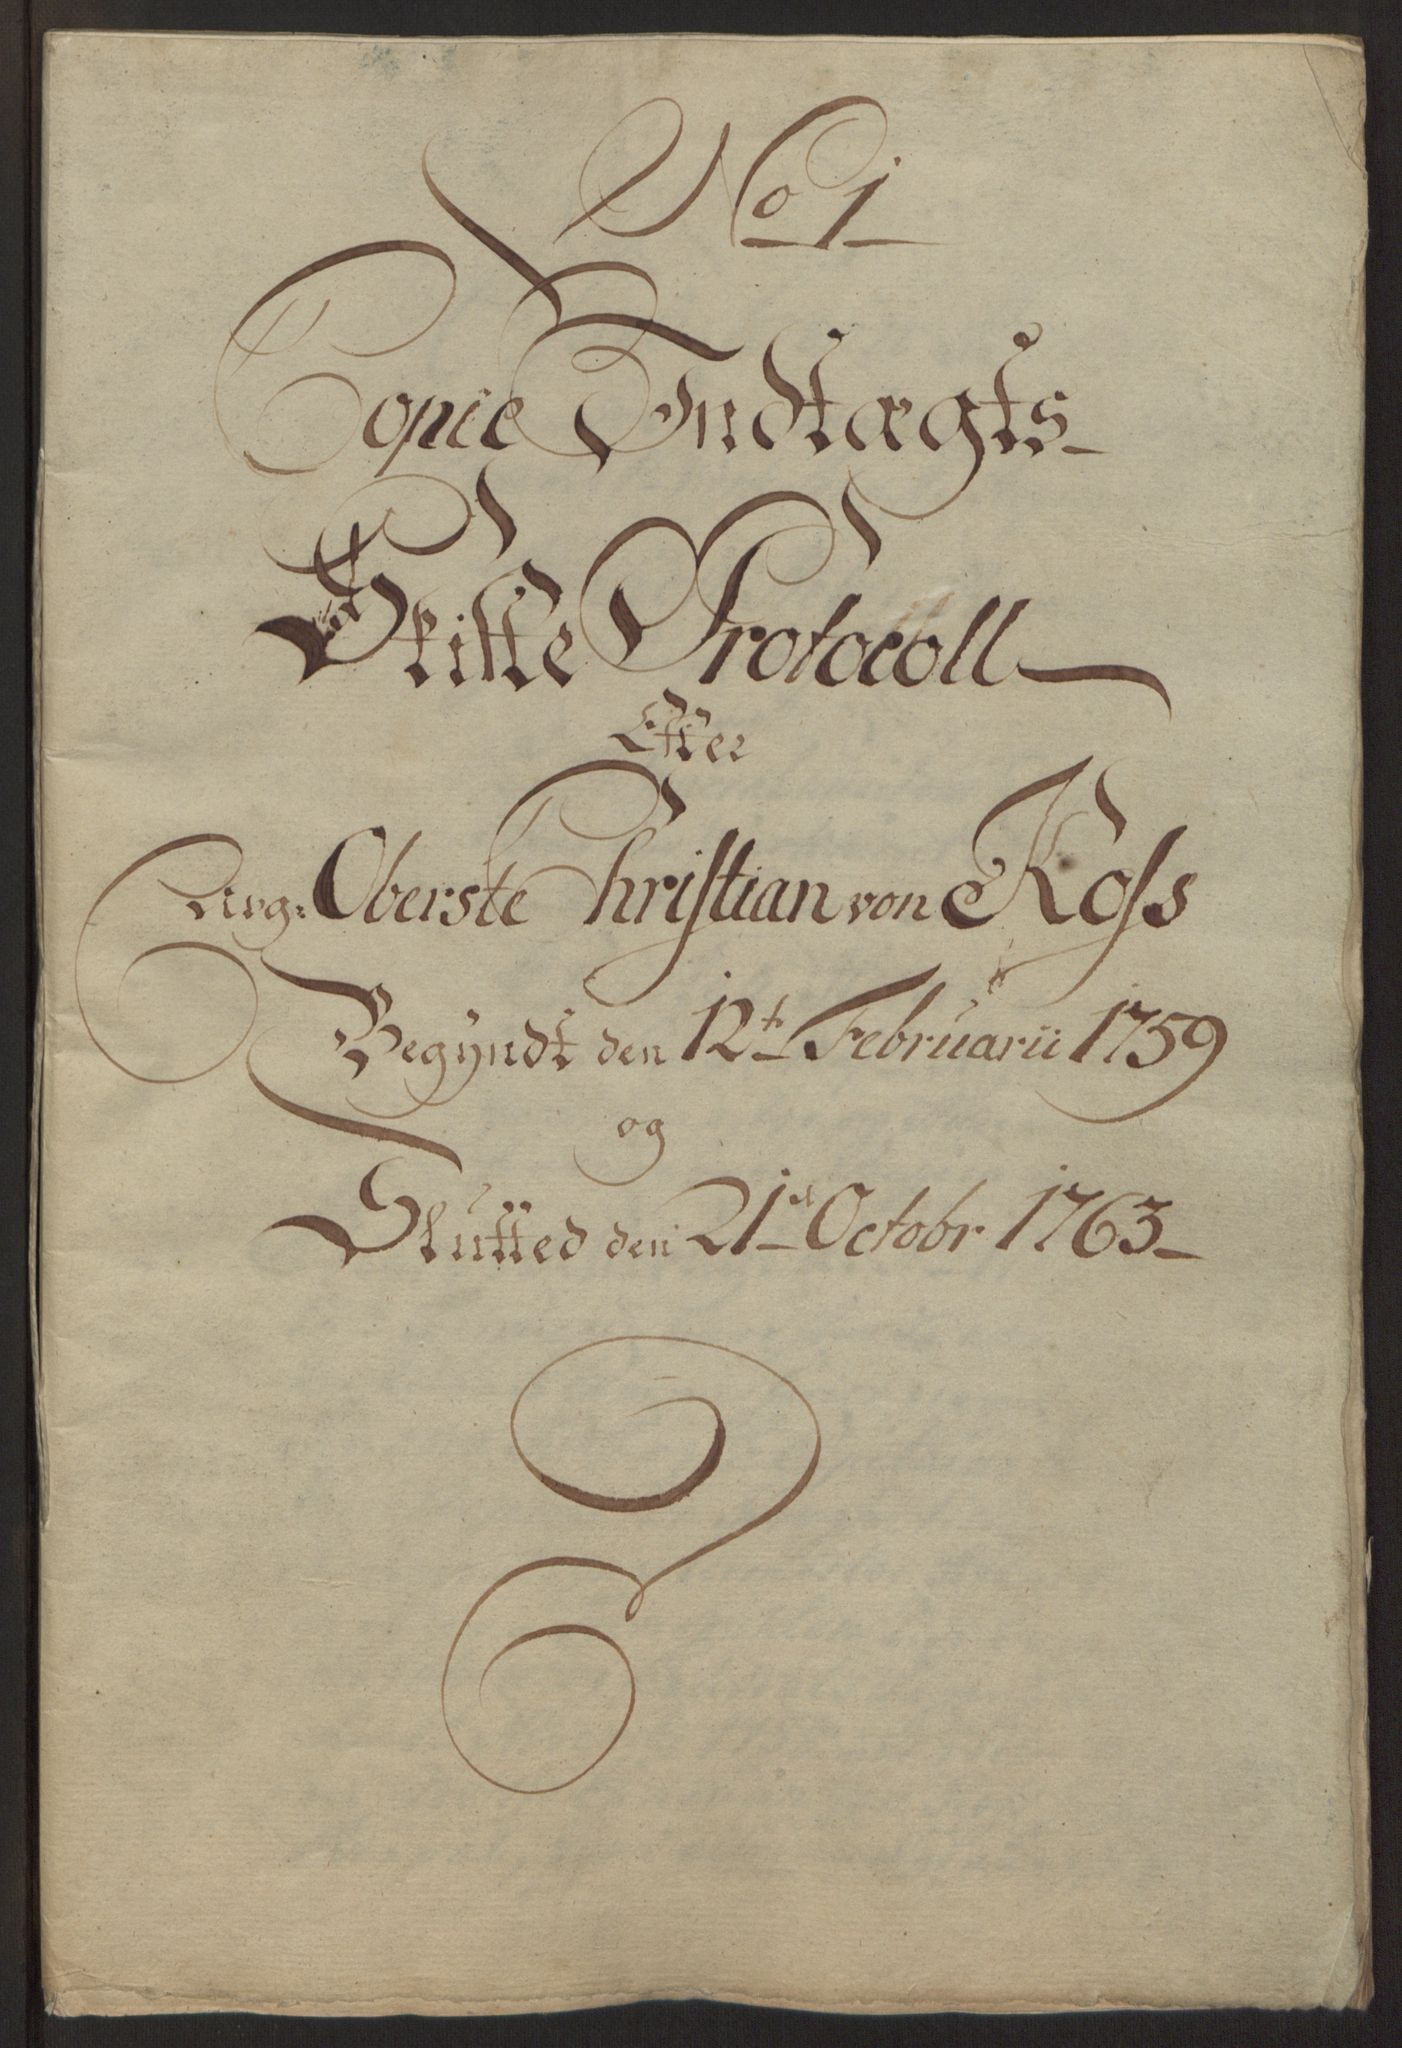 No 1
Copie Indtægts-
Skifte Protocoll
Efter
Oberste Christian von Koss
Begyndt den 12t Februarii 1759
og
Slutted den 21d Octobr 1763